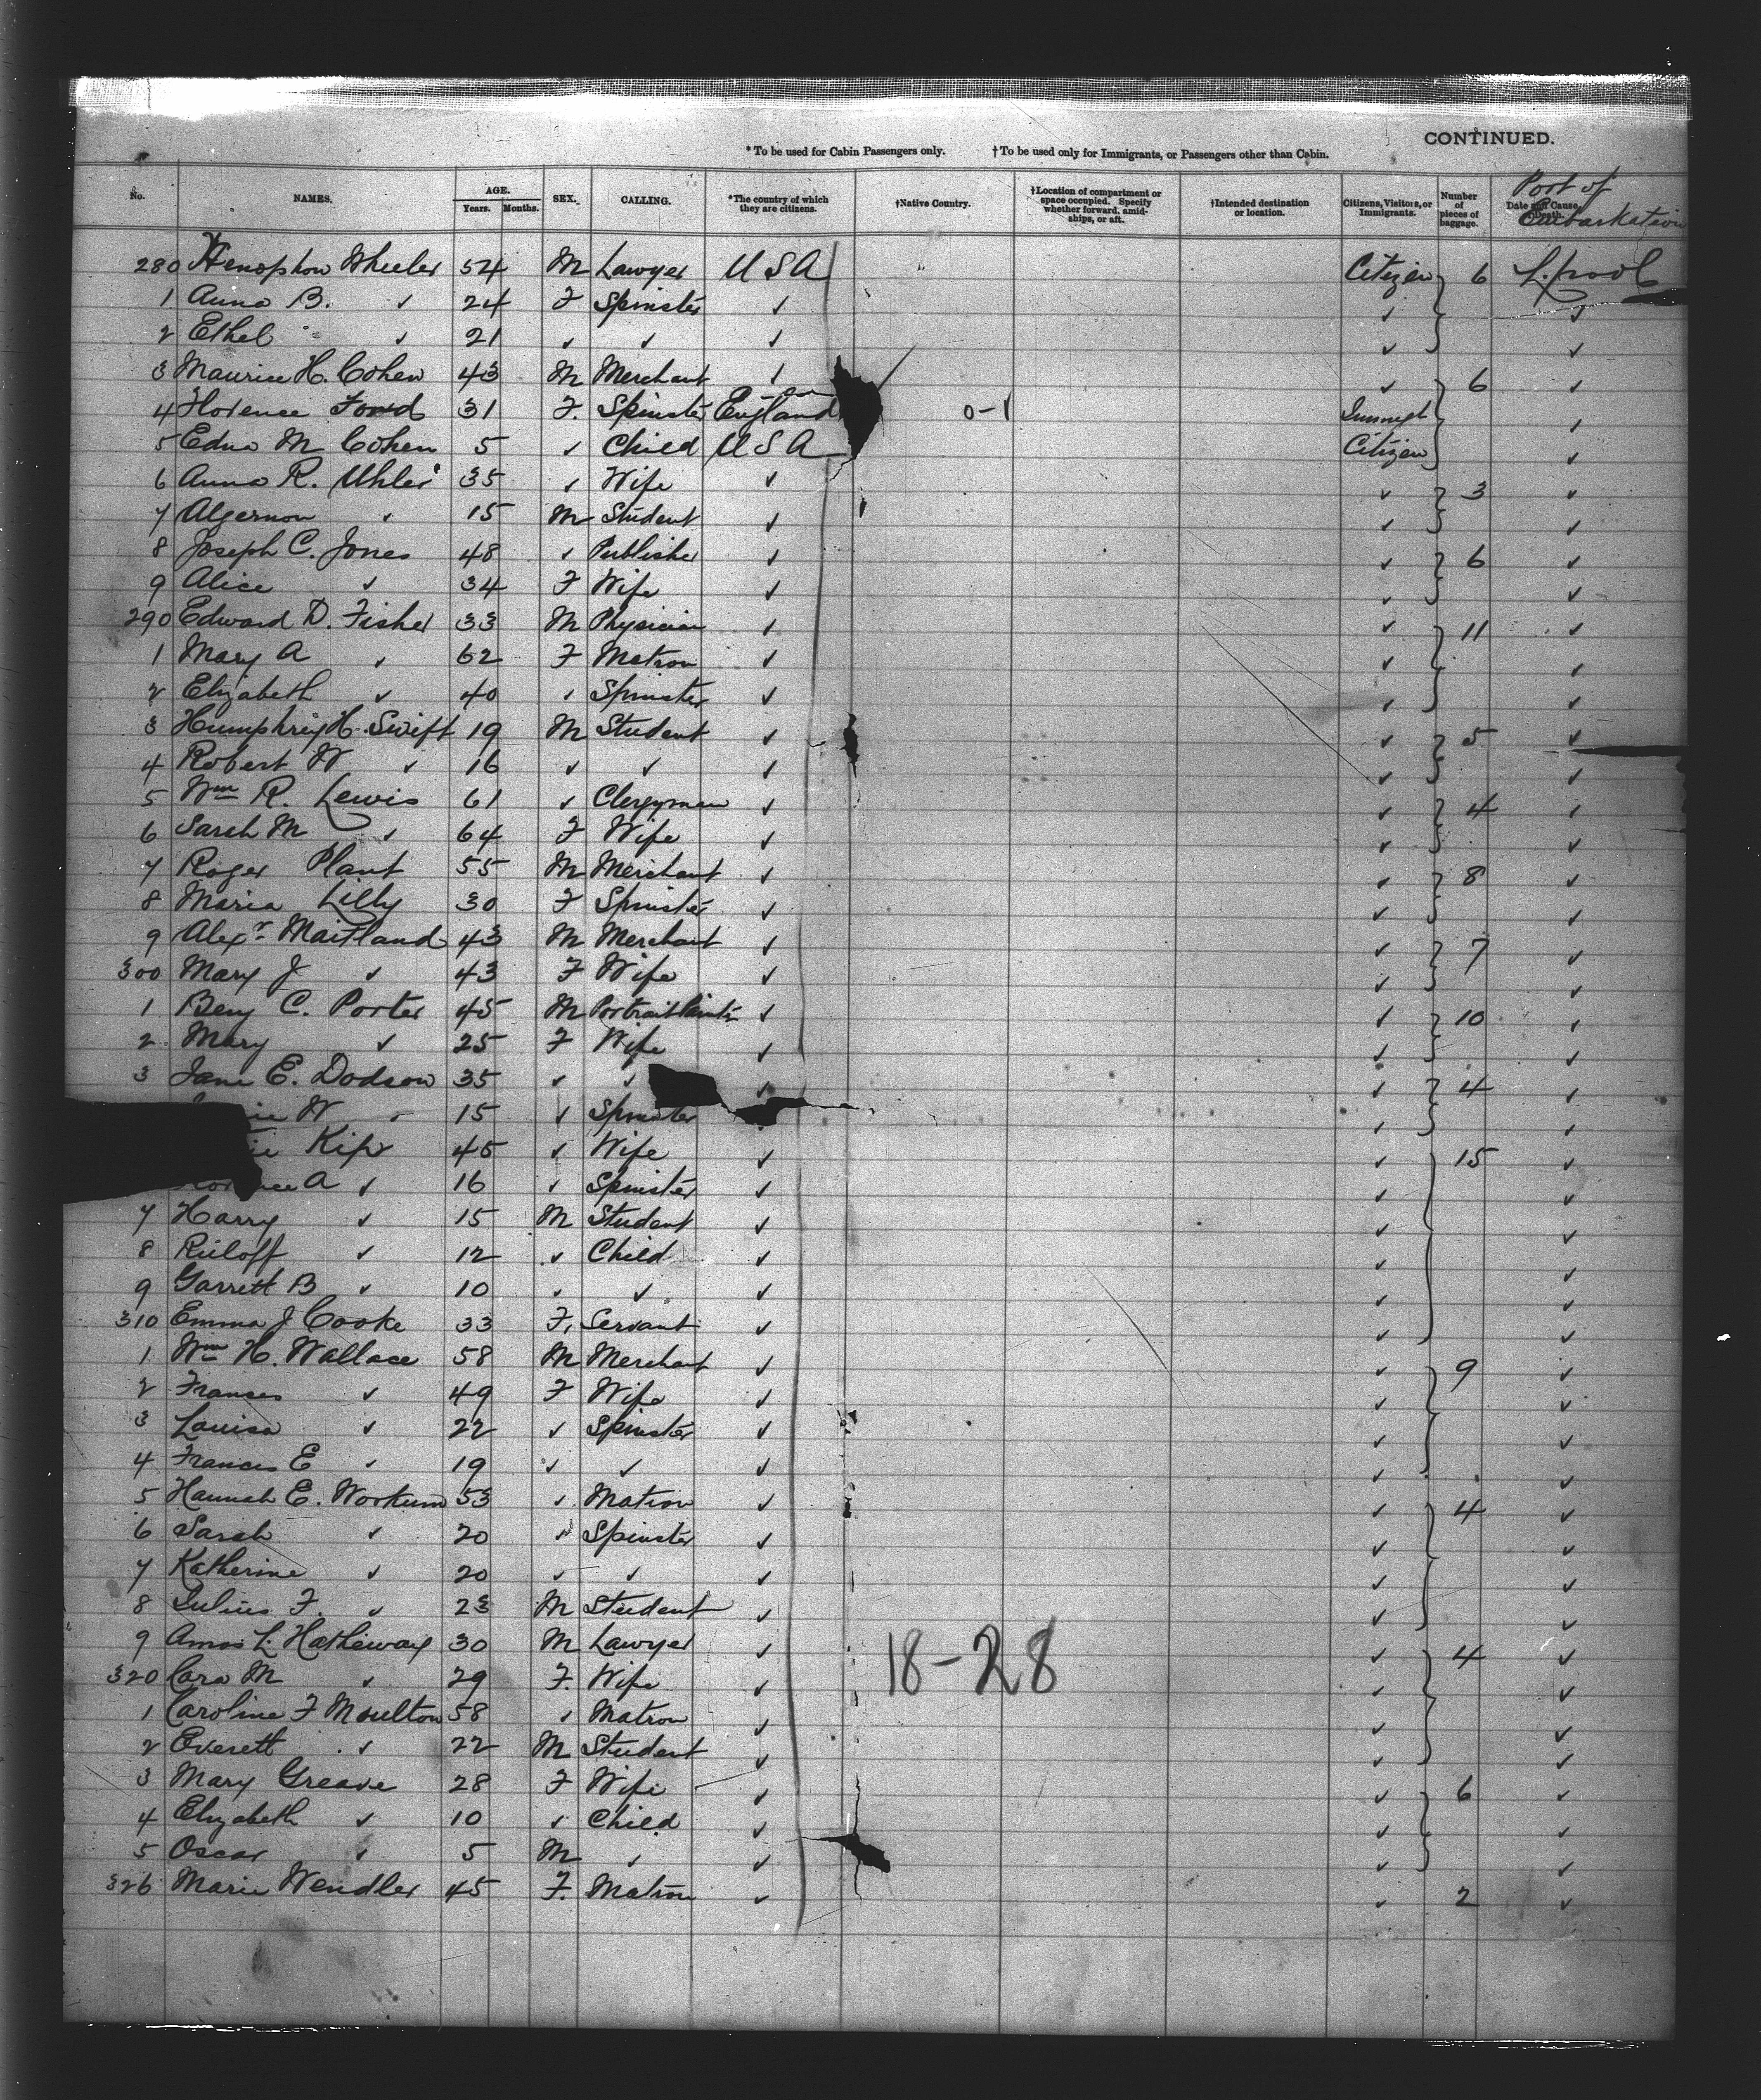 CONTINUED.
* To be used for Cabin Passengers only. † To be used only for Immigrants, or Passengers other than Cabin.
No. NAMES. AGE. Years. Months. SEX. CALLING. *The country of which they are citizens. †Native Country. †Location of compartment or space occupied. Specify whether forward, amidships, or aft. †Intended destination or location. Citizens, Visitors, or Immigrants. Number of pieces of baggage. Date and Cause of Death. Port of Embarkation
280 Xenophon Wheeler 54 M Lawyer USA Citizen 6 L.pool
1 Anna B. ✓ 24 F Spinster ✓ ✓ ✓
2 Ethel ✓ 21 ✓ ✓ ✓ ✓ ✓
3 Maurice H. Cohen 43 M Merchant ✓ ✓ 6 ✓
4 Florence Ford 31 F. Spinster England 0-1 Immigt ✓
5 Edna M Cohen 5 ✓ Child USA Citizen ✓
6 Anna R. Uhler 35 ✓ Wife ✓ ✓ 3 ✓
7 Algernon ✓ 15 M Student ✓ ✓ ✓
8 Joseph C. Jones 48 ✓ Publisher ✓ ✓ 6 ✓
9 Alice ✓ 34 F Wife ✓ ✓ ✓
290 Edward D. Fisher 33 M Physician ✓ ✓ 11 ✓
1 Mary A ✓ 62 F Matron ✓ ✓ ✓
2 Elizabeth ✓ 40 ✓ Spinster ✓ ✓ ✓
3 Humphrey H. Swift 19 M Student ✓ ✓ 5 ✓
4 Robert W ✓ 16 ✓ ✓ ✓ ✓ ✓
5 Wm R. Lewis 61 ✓ Clergyman ✓ ✓ 4 ✓
6 Sarah M ✓ 64 F Wife ✓ ✓ ✓
7 Roger Plant 55 M Merchant ✓ ✓ 8 ✓
8 Maria Lilly 30 F Spinster ✓ ✓ ✓
9 Alexr Maitland 43 M Merchant ✓ ✓ 7 ✓
300 Mary J ✓ 43 F Wife ✓ ✓ ✓
1 Benj C. Porter 45 M Portrait Painter ✓ ✓ 10 ✓
2 Mary ✓ 25 F Wife ✓ ✓ ✓
3 Jane E. Dodson 35 ✓ ✓ ✓ ✓ 4 ✓
W ✓ 15 ✓ Spinster ✓ ✓
Kip 45 ✓ Wife ✓ ✓ 15 ✓
A ✓ 16 ✓ Spinster ✓ ✓ ✓
7 Harry ✓ 15 M Student ✓ ✓ ✓
8 Ruloff ✓ 12 ✓ Child ✓ ✓ ✓
9 Garrett B ✓ 10 ✓ ✓ ✓ ✓ ✓
310 Emma J Cooke 33 F. Servant ✓ ✓ ✓
1 Wm H. Wallace 58 M Merchant ✓ ✓ 9 ✓
2 Frances ✓ 49 F Wife ✓ ✓ ✓
3 Louisa ✓ 22 ✓ Spinster ✓ ✓ ✓
4 Frances E ✓ 19 ✓ ✓ ✓ ✓ ✓
5 Hannah E. Workum 53 ✓ Matron ✓ ✓ 4 ✓
6 Sarah ✓ 20 ✓ Spinster ✓ ✓ ✓
7 Katherine ✓ 20 ✓ ✓ ✓ ✓ ✓
8 Julius F. ✓ 23 M Student ✓ ✓ ✓
9 Amos L. Hatheway 30 M Lawyer ✓ ✓ 4 ✓
320 Cara M ✓ 29 F. Wife ✓ 18-28 ✓ ✓
1 Caroline F Moulton 58 ✓ Matron ✓ ✓ ✓
2 Everett ✓ 22 M Student ✓ ✓ ✓
3 Mary Greave 28 F Wife ✓ ✓ 6 ✓
4 Elizabeth ✓ 10 ✓ Child ✓ ✓ ✓
5 Oscar ✓ 5 M ✓ ✓ ✓ ✓
326 Marie Wendler 45 F. Matron ✓ ✓ 2 ✓